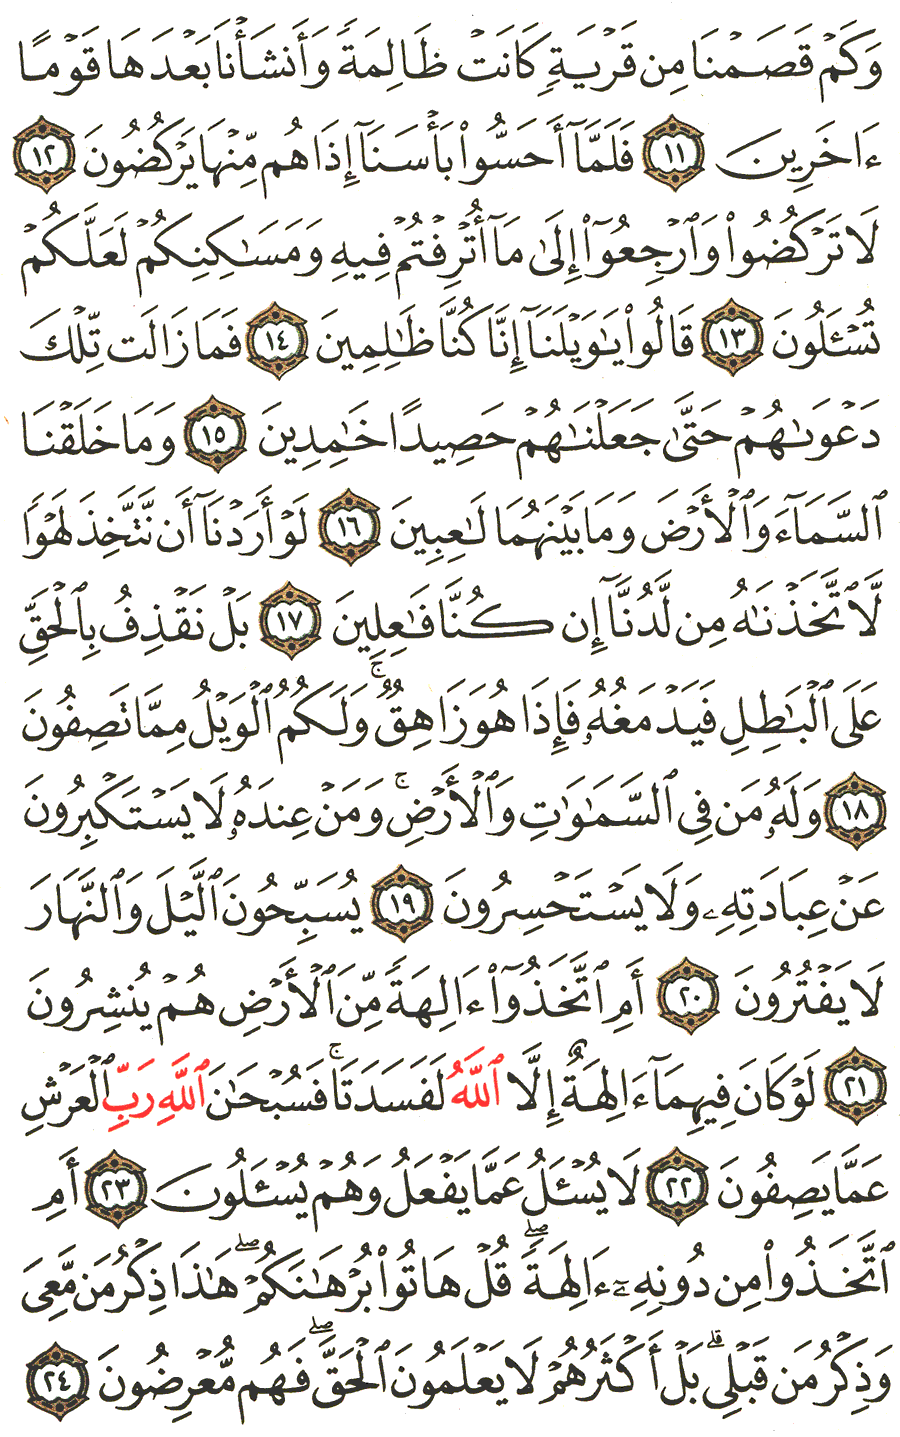 وَكَمْ قَصَمْنَا مِن قَرْيَةٍ كَانَتْ ظَالِمَةً وَأَنشَأْنَا بَعْدَهَا قَوْمًا
ءَاخَرِينَ ١١ فَلَمَّآ أَحَسُّوا۟ بَأْسَنَآ إِذَا هُم مِّنْهَا يَرْكُضُونَ ١٢
لَا تَرْكُضُوا۟ وَٱرْجِعُوٓا۟ إِلَىٰ مَآ أُتْرِفْتُمْ فِيهِ وَمَسَـٰكِنِكُمْ لَعَلَّكُمْ
تُسْـَٔلُونَ ١٣ قَالُوا۟ يَـٰوَيْلَنَآ إِنَّا كُنَّا ظَـٰلِمِينَ ١٤ فَمَا زَالَت تِّلْكَ
دَعْوَىٰهُمْ حَتَّىٰ جَعَلْنَـٰهُمْ حَصِيدًا خَـٰمِدِينَ ١٥ وَمَا خَلَقْنَا
ٱلسَّمَآءَ وَٱلْأَرْضَ وَمَا بَيْنَهُمَا لَـٰعِبِينَ ١٦ لَوْ أَرَدْنَآ أَن نَّتَّخِذَ لَهْوًا
لَّٱتَّخَذْنَـٰهُ مِن لَّدُنَّآ إِن كُنَّا فَـٰعِلِينَ ١٧ بَلْ نَقْذِفُ بِٱلْحَقِّ
عَلَى ٱلْبَـٰطِلِ فَيَدْمَغُهُۥ فَإِذَا هُوَ زَاهِقٌ ۚ وَلَكُمُ ٱلْوَيْلُ مِمَّا تَصِفُونَ
١٨ وَلَهُۥ مَن فِى ٱلسَّمَـٰوَٰتِ وَٱلْأَرْضِ ۚ وَمَنْ عِندَهُۥ لَا يَسْتَكْبِرُونَ
عَنْ عِبَادَتِهِۦ وَلَا يَسْتَحْسِرُونَ ١٩ يُسَبِّحُونَ ٱلَّيْلَ وَٱلنَّهَارَ
لَا يَفْتُرُونَ ٢٠ أَمِ ٱتَّخَذُوٓا۟ ءَالِهَةً مِّنَ ٱلْأَرْضِ هُمْ يُنشِرُونَ
٢١ لَوْ كَانَ فِيهِمَآ ءَالِهَةٌ إِلَّا ٱللَّهُ لَفَسَدَتَا ۚ فَسُبْحَـٰنَ ٱللَّهِ رَبِّ ٱلْعَرْشِ
عَمَّا يَصِفُونَ ٢٢ لَا يُسْـَٔلُ عَمَّا يَفْعَلُ وَهُمْ يُسْـَٔلُونَ ٢٣ أَمِ
ٱتَّخَذُوا۟ مِن دُونِهِۦٓ ءَالِهَةً ۖ قُلْ هَاتُوا۟ بُرْهَـٰنَكُمْ ۖ هَـٰذَا ذِكْرُ مَن مَّعِىَ
وَذِكْرُ مَن قَبْلِى ۗ بَلْ أَكْثَرُهُمْ لَا يَعْلَمُونَ ٱلْحَقَّ ۖ فَهُم مُّعْرِضُونَ ٢٤